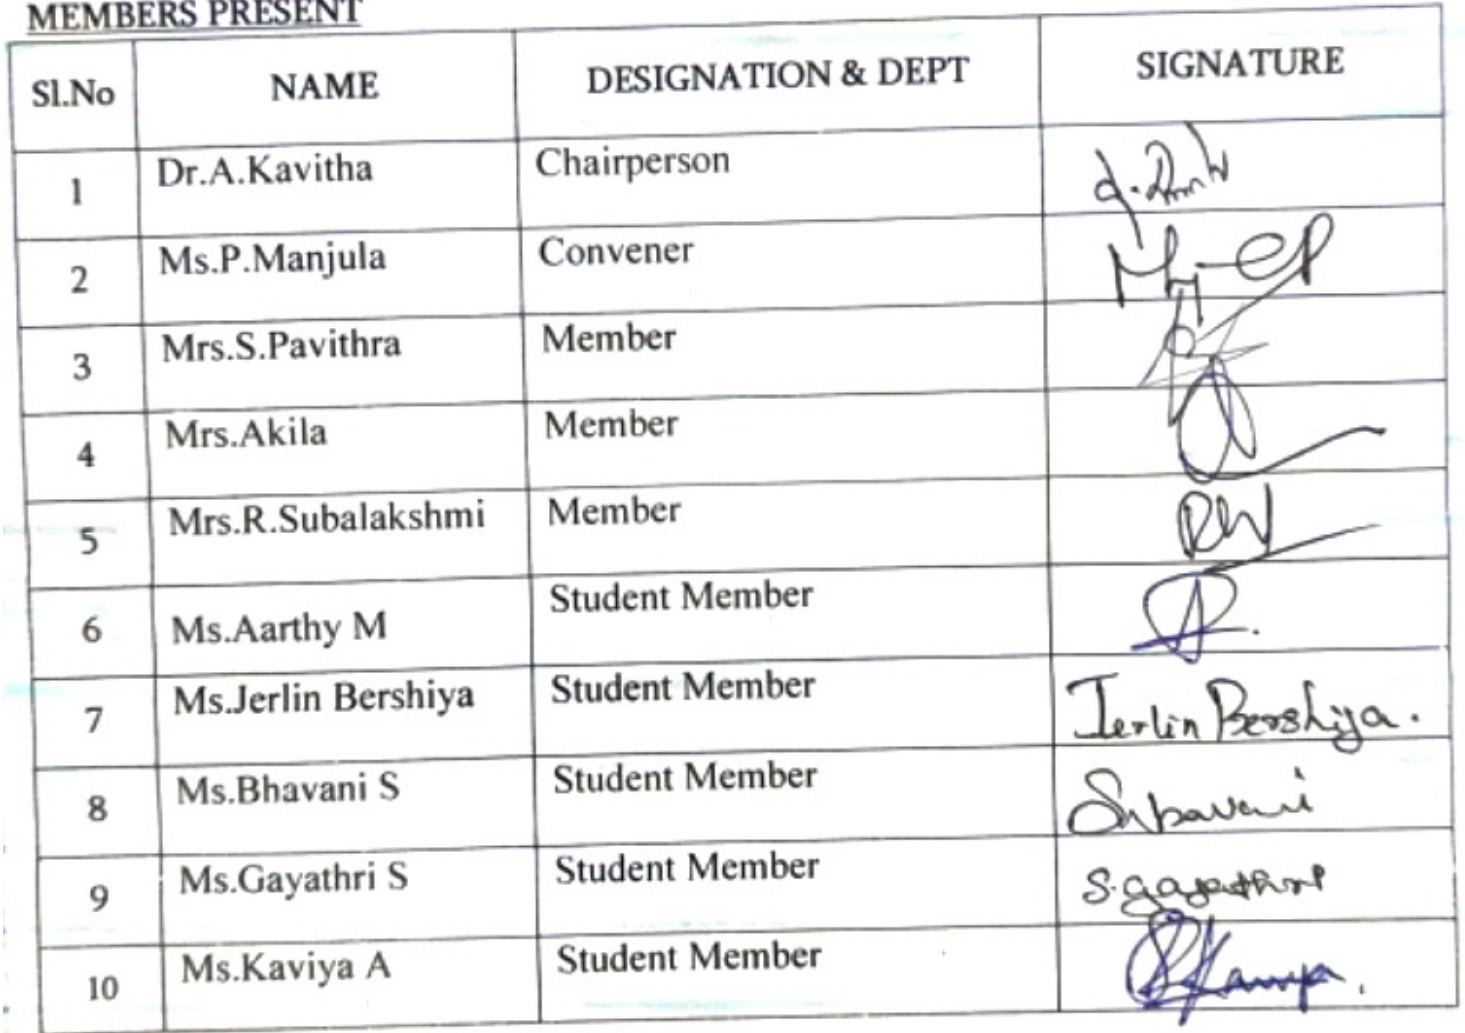 MEMBERS PRESENT
Sl.No NAME DESIGNATION & DEPT SIGNATURE
1 Dr.A.Kavitha Chairperson
2 Ms.P.Manjula Convener
3 Mrs.S.Pavithra Member
4 Mrs.Akila Member
5 Mrs.R.Subalakshmi Member
6 Ms.Aarthy M Student Member
7 Ms.Jerlin Bershiya Student Member Jerlin Bershiya.
8 Ms.Bhavani S Student Member
9 Ms.Gayathri S Student Member S.gayathri
10 Ms.Kaviya A Student Member